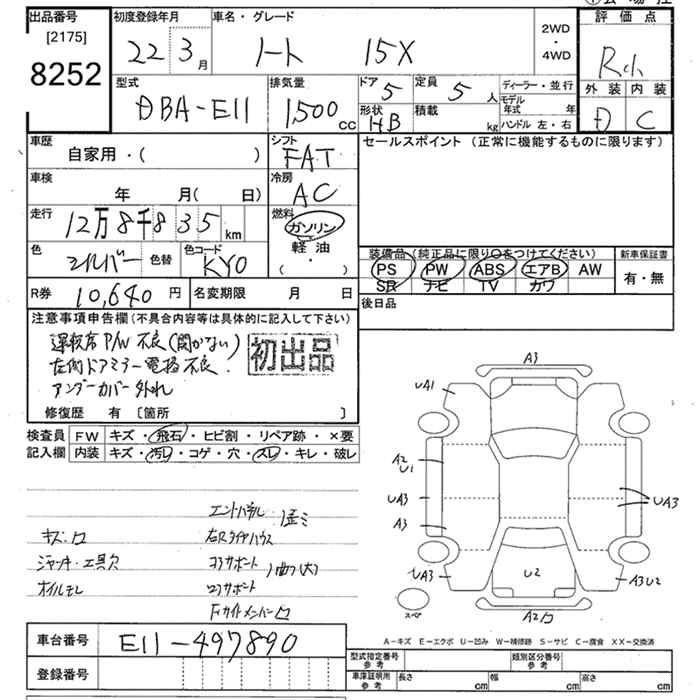 出品番号
[2175]
8252
初度登録年月
22 3月
車名・グレード
ノート 15X
2WD
・
4WD
評価点
外装 内装
D C
型式
DBA-E11
排気量
1500cc
ドア
5
定員
5人
形状
HB
積載
kg
ディーラー・並行
モデル年式 年
ハンドル 左・右
車歴
自家用・( )
シフト
FAT
セールスポイント (正常に機能するものに限ります)
車検
年 月( 日)
冷房
AC
走行
12万8千835km
燃料
ガソリン
・
軽油
( ・ )
色
シルバー
色替
色コード
KY0
装備品(純正品に限り〇をつけてください)
PS PW ABS エアB AW
SR ナビ TV カワ
新車保証書
有・無
R券 10,640円
名変期限 月 日
後日品
注意事項申告欄(不具合内容等は具体的に記入して下さい)
運転席P/W不良(開かない)
左側ドアミラー電格不良.
アンダーカバー外れ
初出品
修復歴 有 [箇所 ]
検査員記入欄
FW キズ・飛石・ヒビ割・リペア跡・×要
内装 キズ・汚レ・コゲ・穴・スレ・キレ・破レ
エンドパネル
歪ミ
キズ・凹
右Rタイヤハウス
ジャッキ・工具欠
コアサポート
曲り(大)
オイルモレ
ロアサポート
Fサイドメンバー凹
A3
UA1
A2
U1
UA3
A3
UA3
UA3
U2
A3U2
スペア
A-キズ E-エクボ U-凹み W-補修跡 S-サビ C-腐食 XX-交換済
車台番号
E11-497890
登録番号
型式指定番号
参考
類別区分番号
参考
車庫証明用
参考
長さ cm
幅 cm
高さ cm